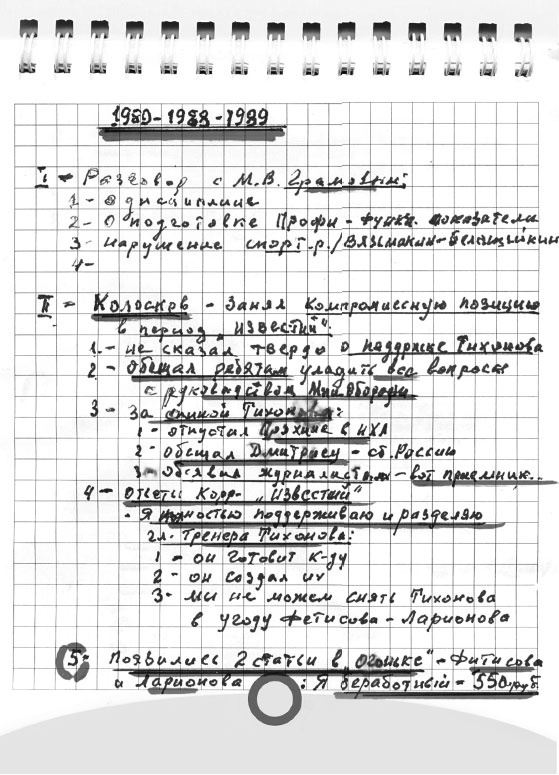 1980-1988-1989
I - Разговор с М.В. Грамовым:
1- о дисциплине
2- О подготовке Профи - функц. показатели
3- нарушение спорт.р./Вязьмикин-Белощейкин
4-
II - Колосков - занял компромиссную позицию
в период "Известий":
1.- не сказал твердо о поддержке Тихонова
2 - Обещал ребятам уладить все вопросы
с руководством Мин Обороны
3- За спиной Тихонова:
1- отпустил Пряхина в НХЛ
2- обещал Дмитриеву - сб. России
3- Объявил журналистам - вот приемник...
4 - Ответы Корр- "Известий"
- Я полностью поддерживаю и разделяю
гл. тренера Тихонова:
1 - он готовит к-ду
2 - он создал их
3- мы не можем снять Тихонова
в угоду Фетисова - Ларионова
5- Появились 2 статьи в "Огоньке" - Фитисова
и Ларионова : Я безработный - 550 руб.